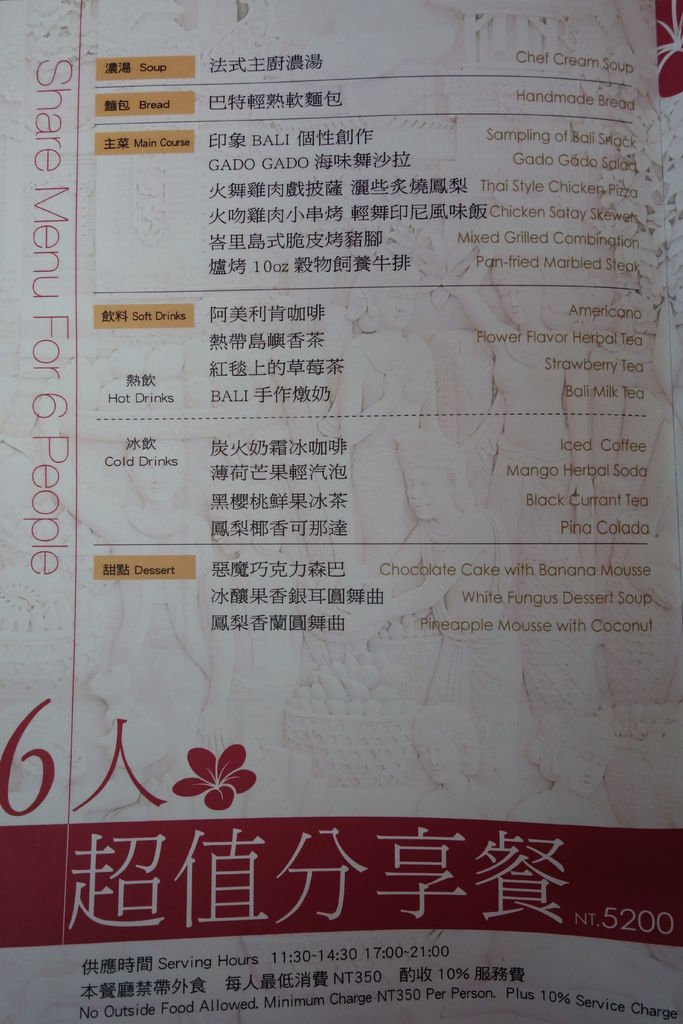 Share Menu For 6 People
濃湯 Soup 法式主廚濃湯 Chef Cream Soup
麵包 Bread 巴特輕熟軟麵包 Handmade Bread
主菜 Main Course 印象 BALI 個性創作 Sampling of Bali Snack
GADO GADO 海味舞沙拉 Gado Gado Salad
火舞雞肉戲披薩 灑些炙燒鳳梨 Thai Style Chicken Pizza
火吻雞肉小串烤 輕舞印尼風味飯 Chicken Satay Skewers
峇里島式脆皮烤豬腳 Mixed Grilled Combination
爐烤 10oz 穀物飼養牛排 Pan-fried Marbled Steak
飲料 Soft Drinks 阿美利肯咖啡 Americano
熱帶島嶼香茶 Flower Flavor Herbal Tea
熱飲 紅毯上的草莓茶 Strawberry Tea
Hot Drinks BALI 手作燉奶 Bali Milk Tea
冰飲 炭火奶霜冰咖啡 Iced Coffee
Cold Drinks 薄荷芒果輕汽泡 Mango Herbal Soda
黑櫻桃鮮果冰茶 Black Currant Tea
鳳梨椰香可那達 Pina Colada
甜點 Dessert 惡魔巧克力森巴 Chocolate Cake with Banana Mousse
冰釀果香銀耳圓舞曲 White Fungus Dessert Soup
鳳梨香蘭圓舞曲 Pineapple Mousse with Coconut
6人
超值分享餐 NT.5200
供應時間 Serving Hours 11:30~14:30 17:00~21:00
本餐廳禁帶外食 每人最低消費 NT350 酌收 10% 服務費
No Outside Food Allowed. Minimum Charge NT350 Per Person. Plus 10% Service Charge